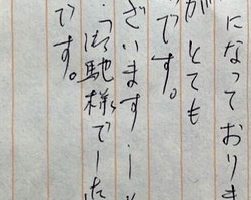 になっておりま
がとても
です。
ざいます
御馳様でした
です。